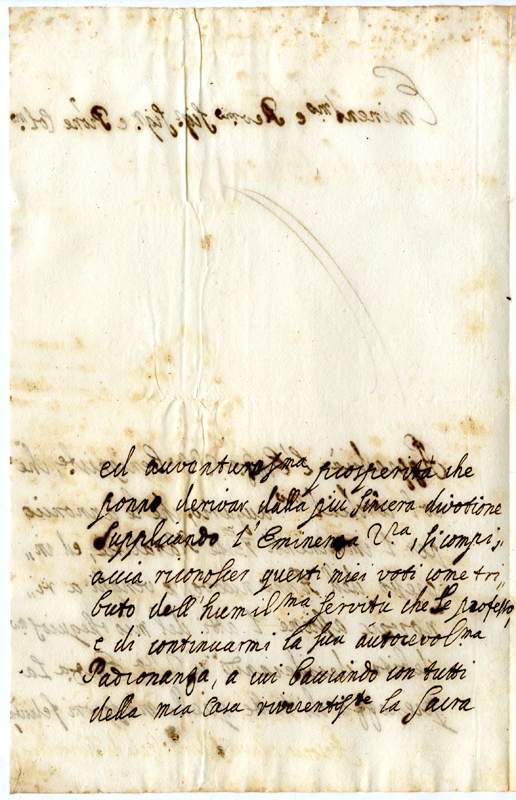 ed auventuros.ma prosperità che
ponno derivar dalla più sincera divotione
supplicando l'Eminenza V.ra, si compi,,
accia riconoscer questi miei voti come tri,,
buto dell'humil.ma servitù che Le professo,
e di continuarmi la sua autorevol.ma
Padronanza, a cui bacciando con tutti
della mia Casa riverentiss.te la Sacra